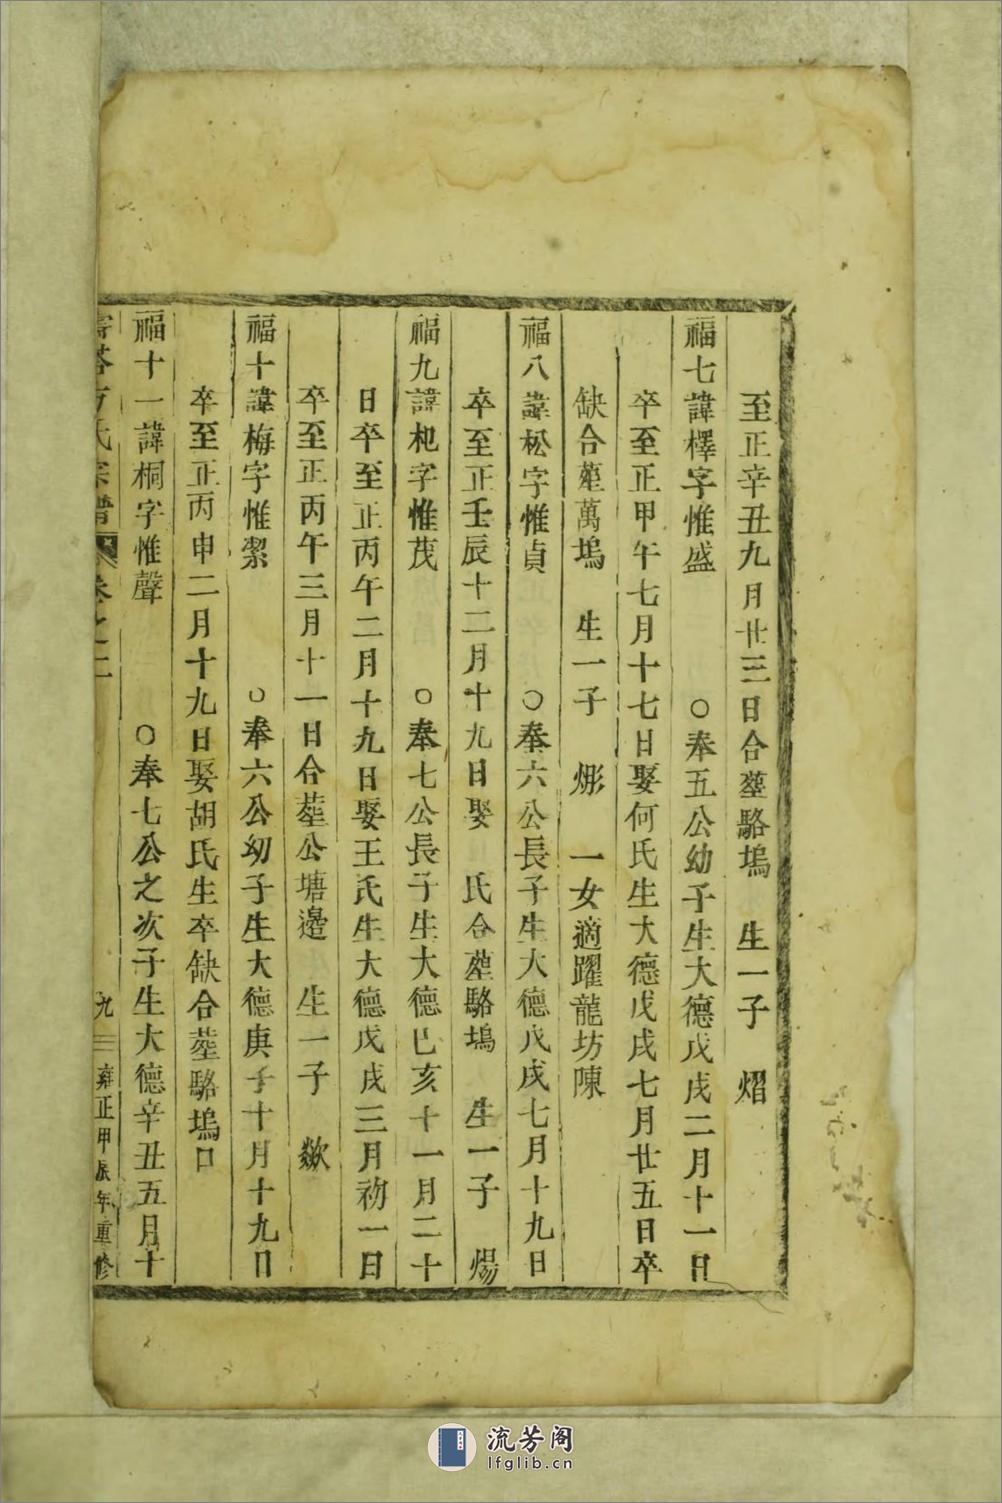 至正辛丑九月廿三日合塟駱塢 生一子 熠
福七諱檡字惟盛 ○奉五公幼子生大德戊戌二月十一日
卒至正甲午七月十七日娶何氏生大德戊戌七月廿五日卒
缺合塟萬塢 生一子 烿 一女適躍龍坊陳
福八諱松字惟貞 ○奉六公長子生大德戊戌七月十九日
卒至正壬辰十二月十九日娶 氏合塟駱塢 生一子 煬
福九諱杞字惟茂 ○奉七公長子生大德己亥十一月二十
日卒至正丙午二月十九日娶王氏生大德戊戌三月初一日
卒至正丙午三月十一日合塟公塘邊 生一子 歘
福十諱梅字惟潔 ○奉六公幼子生大德庚子十月十九日
卒至正丙申二月十九日娶胡氏生卒缺合塟駱塢口
福十一諱桐字惟聲 ○奉七公之次子生大德辛丑五月十
塔方氏宗譜 卷之二 九 雍正甲辰年重修
流芳阁
lfglib.cn